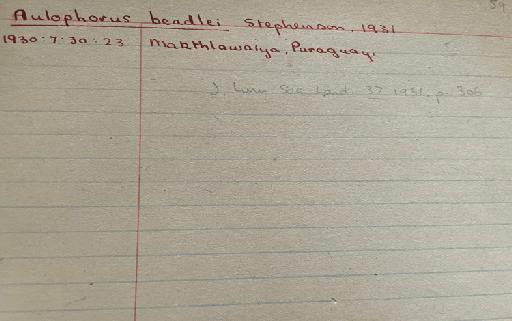 59
Aulophorus beadlei Stephenson, 1931
1930:7:30:23 Makthlawaiya, Paraguay.
J. Linn. Soc. Lond. 37 1931, p. 306